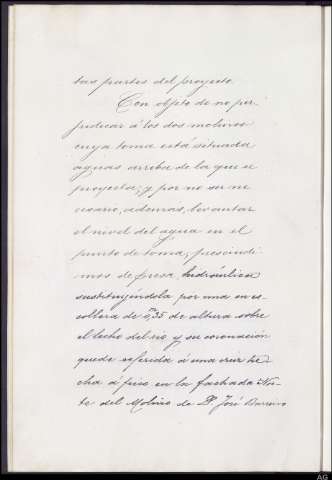 tas partes del proyecto
Con objeto de no per-
judicar á los dos molinos
cuya toma está situada
aguas arriba de la que se
proyecta; y por no ser ne-
cesario, ademas, levantar
el nivel del agua en el
punto de toma, prescindi-
mos de presa hidráulica
sustituyéndola por una es-
collera de 0,35 de altura sobre
el lecho del rio y su coronación
quede referida á una cruz he-
cha á pico en la fachada Nor-
te del Molino de D. José Barreiro
AG